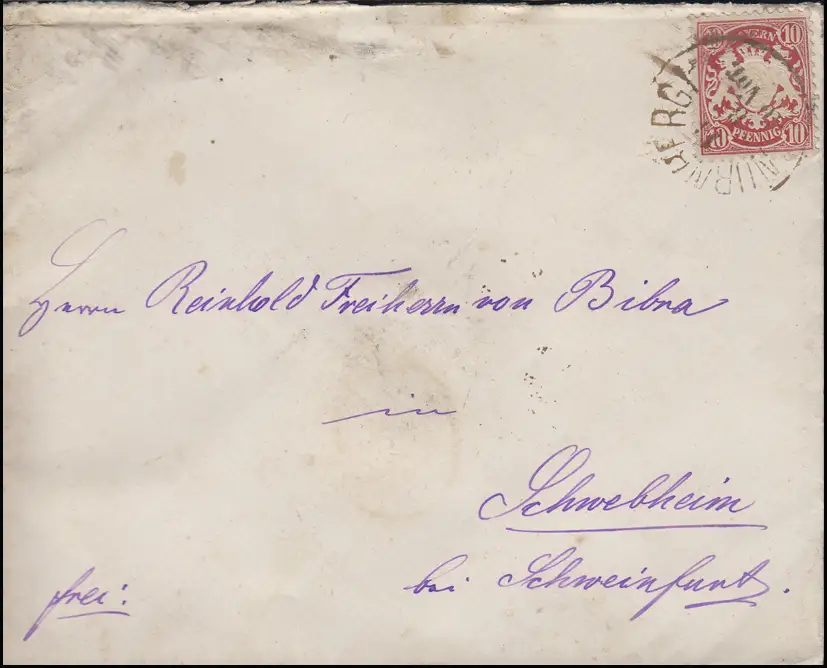 10 BAYERN 10
10 PFENNIG 10
NÜRNBERG
Herrn Reinhold Freiherrn von Bibra
in
Schwebheim
bei Schweinfurt.
frei: